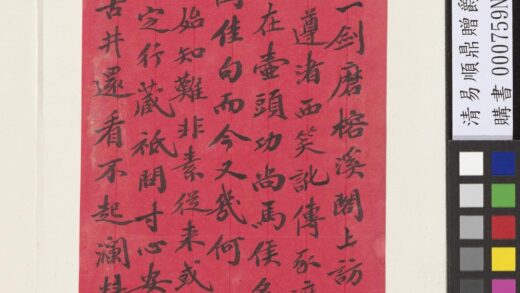 一剑磨榕溪閣上訪
遵渚西笑訛傳豕
在壺頭功尚馬侯
佳句而今又幾何
始知難非素從來或
定行藏祇問寸心安
古井還看不起瀾
清易順鼎贈爵
購書000759N